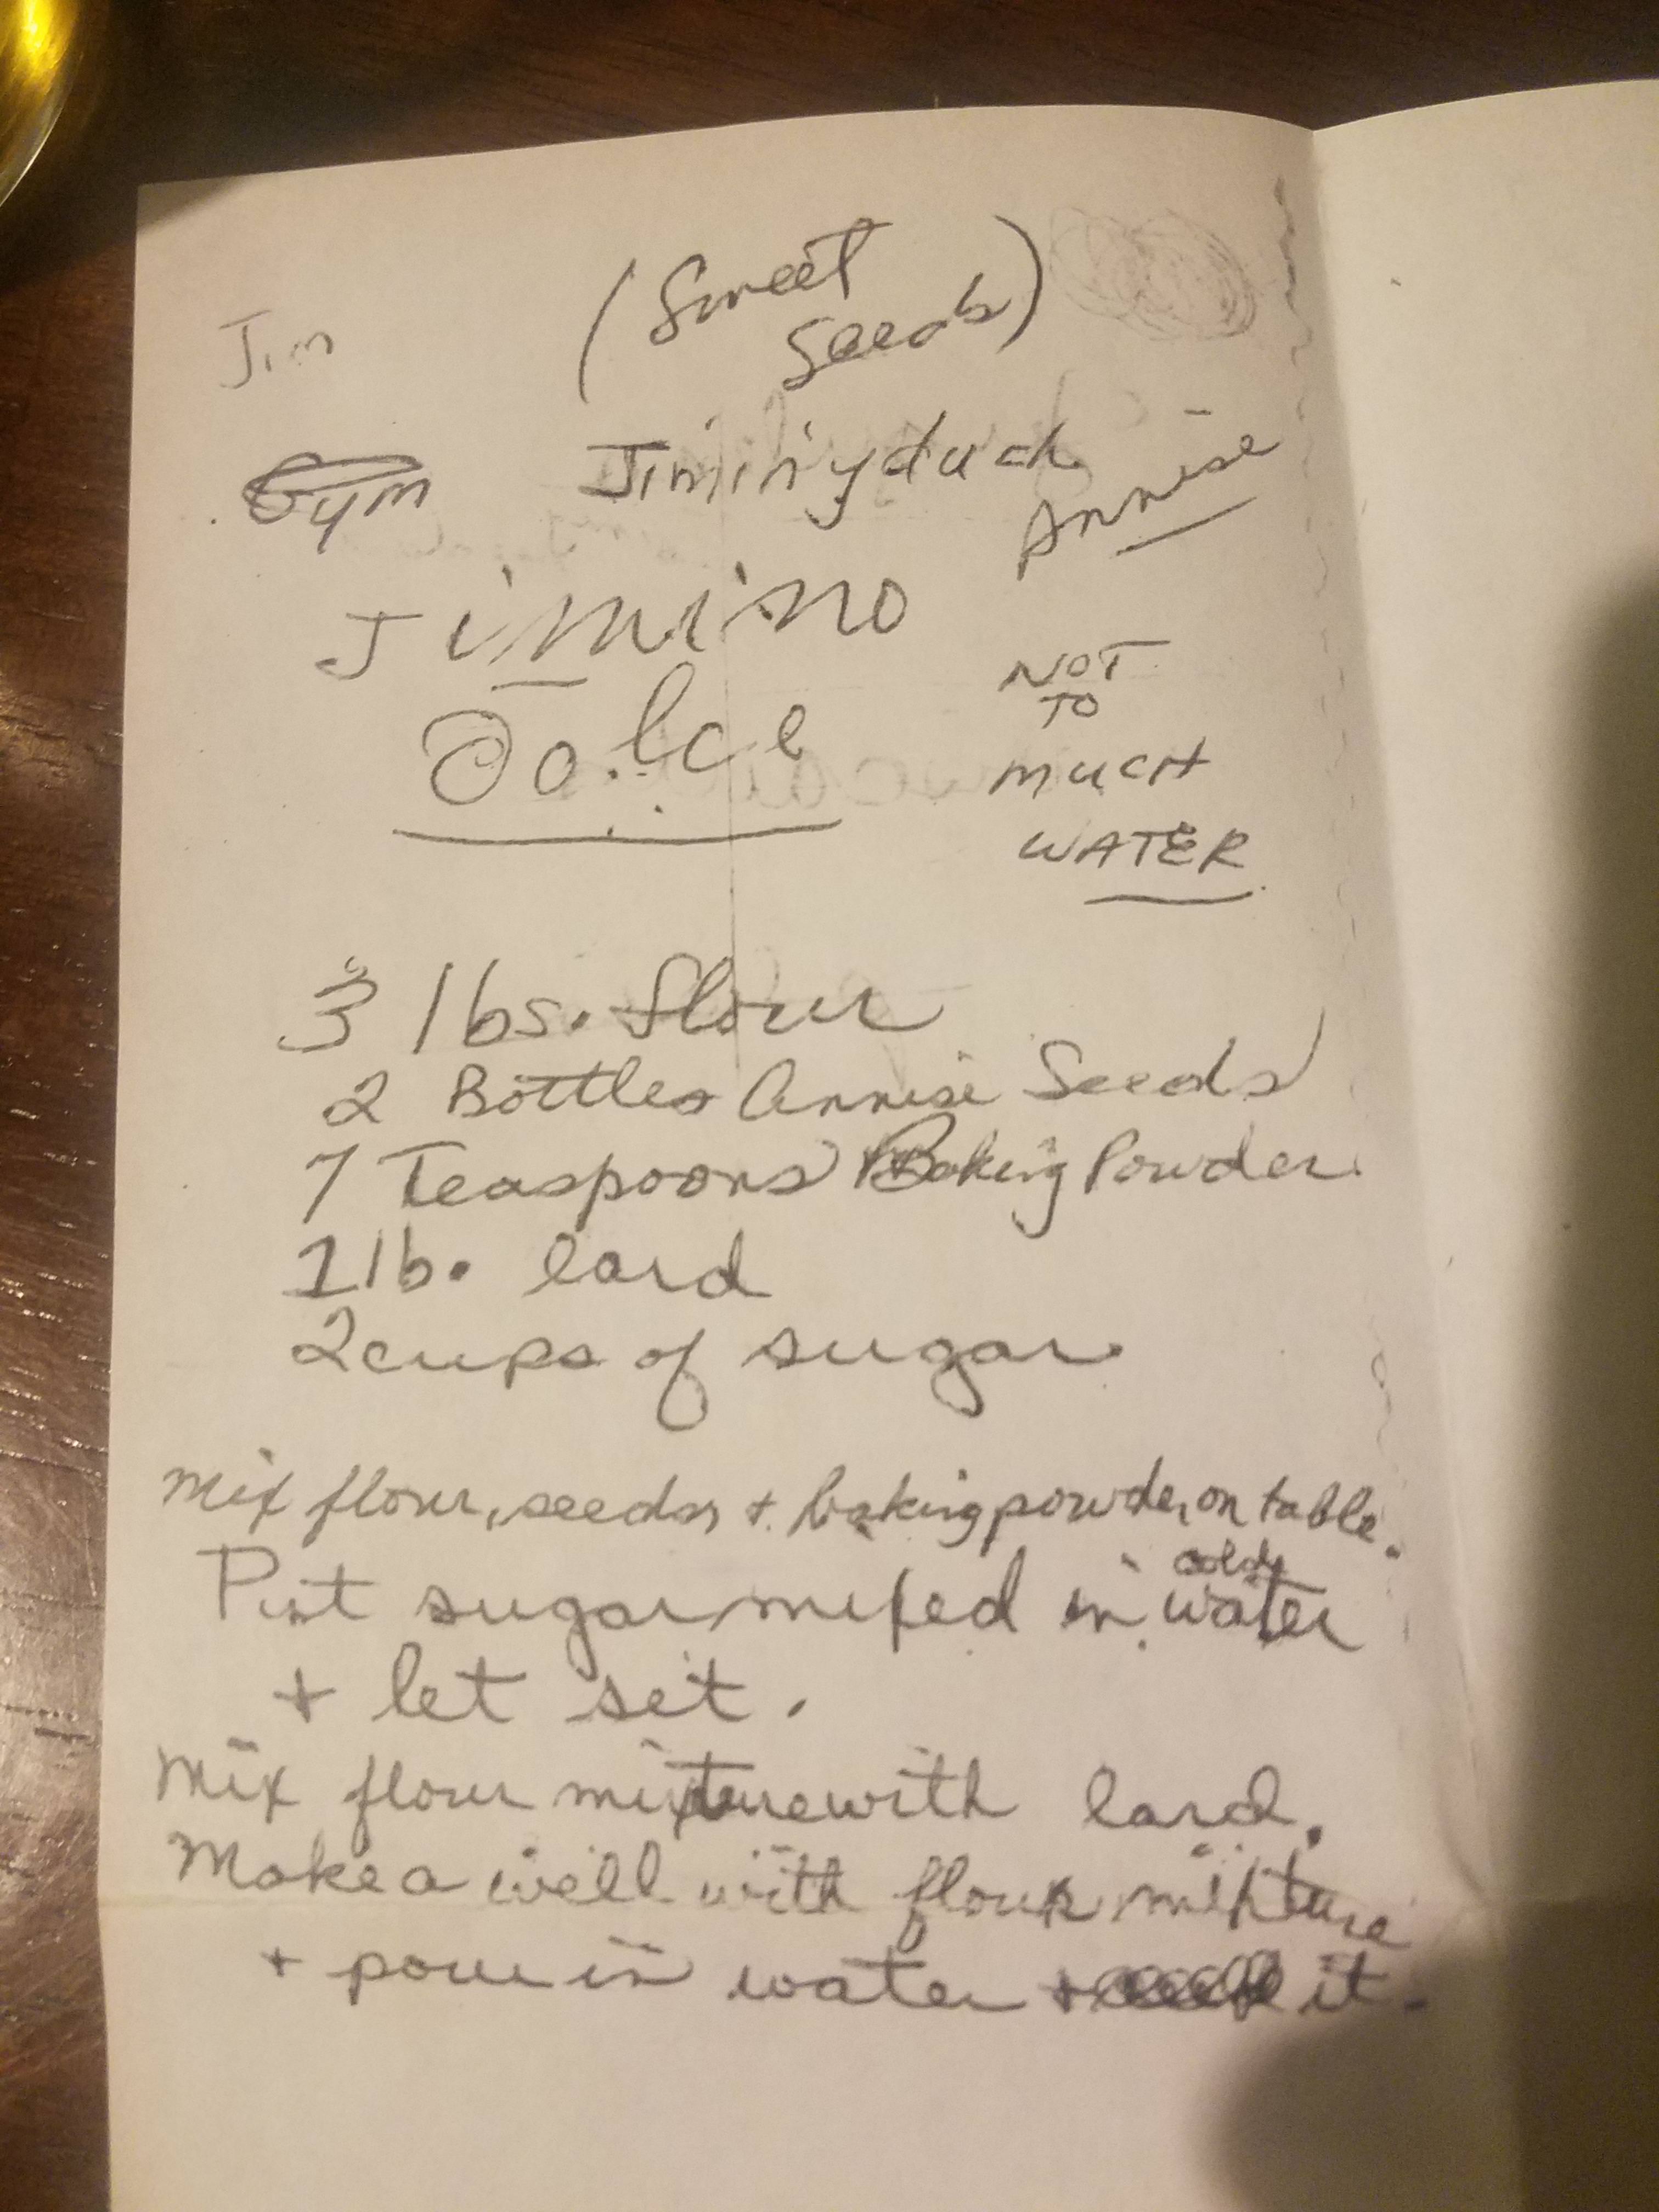 (Sweet
Seeds)
Jim
Gym
Jiminyduch
Annise
Jimino
Dolce
NOT
TO
MUCH
WATER
3 lbs. flour
2 Bottles Annise Seeds
7 Teaspoons Baking Powder
1 lb. lard
2 cups of sugar
Mix flour, seeds + baking powder on table.
Put sugar mixed in cold water
+ let set.
Mix flour mixture with lard.
Make a well with flour mixture
+ pour in water + it.